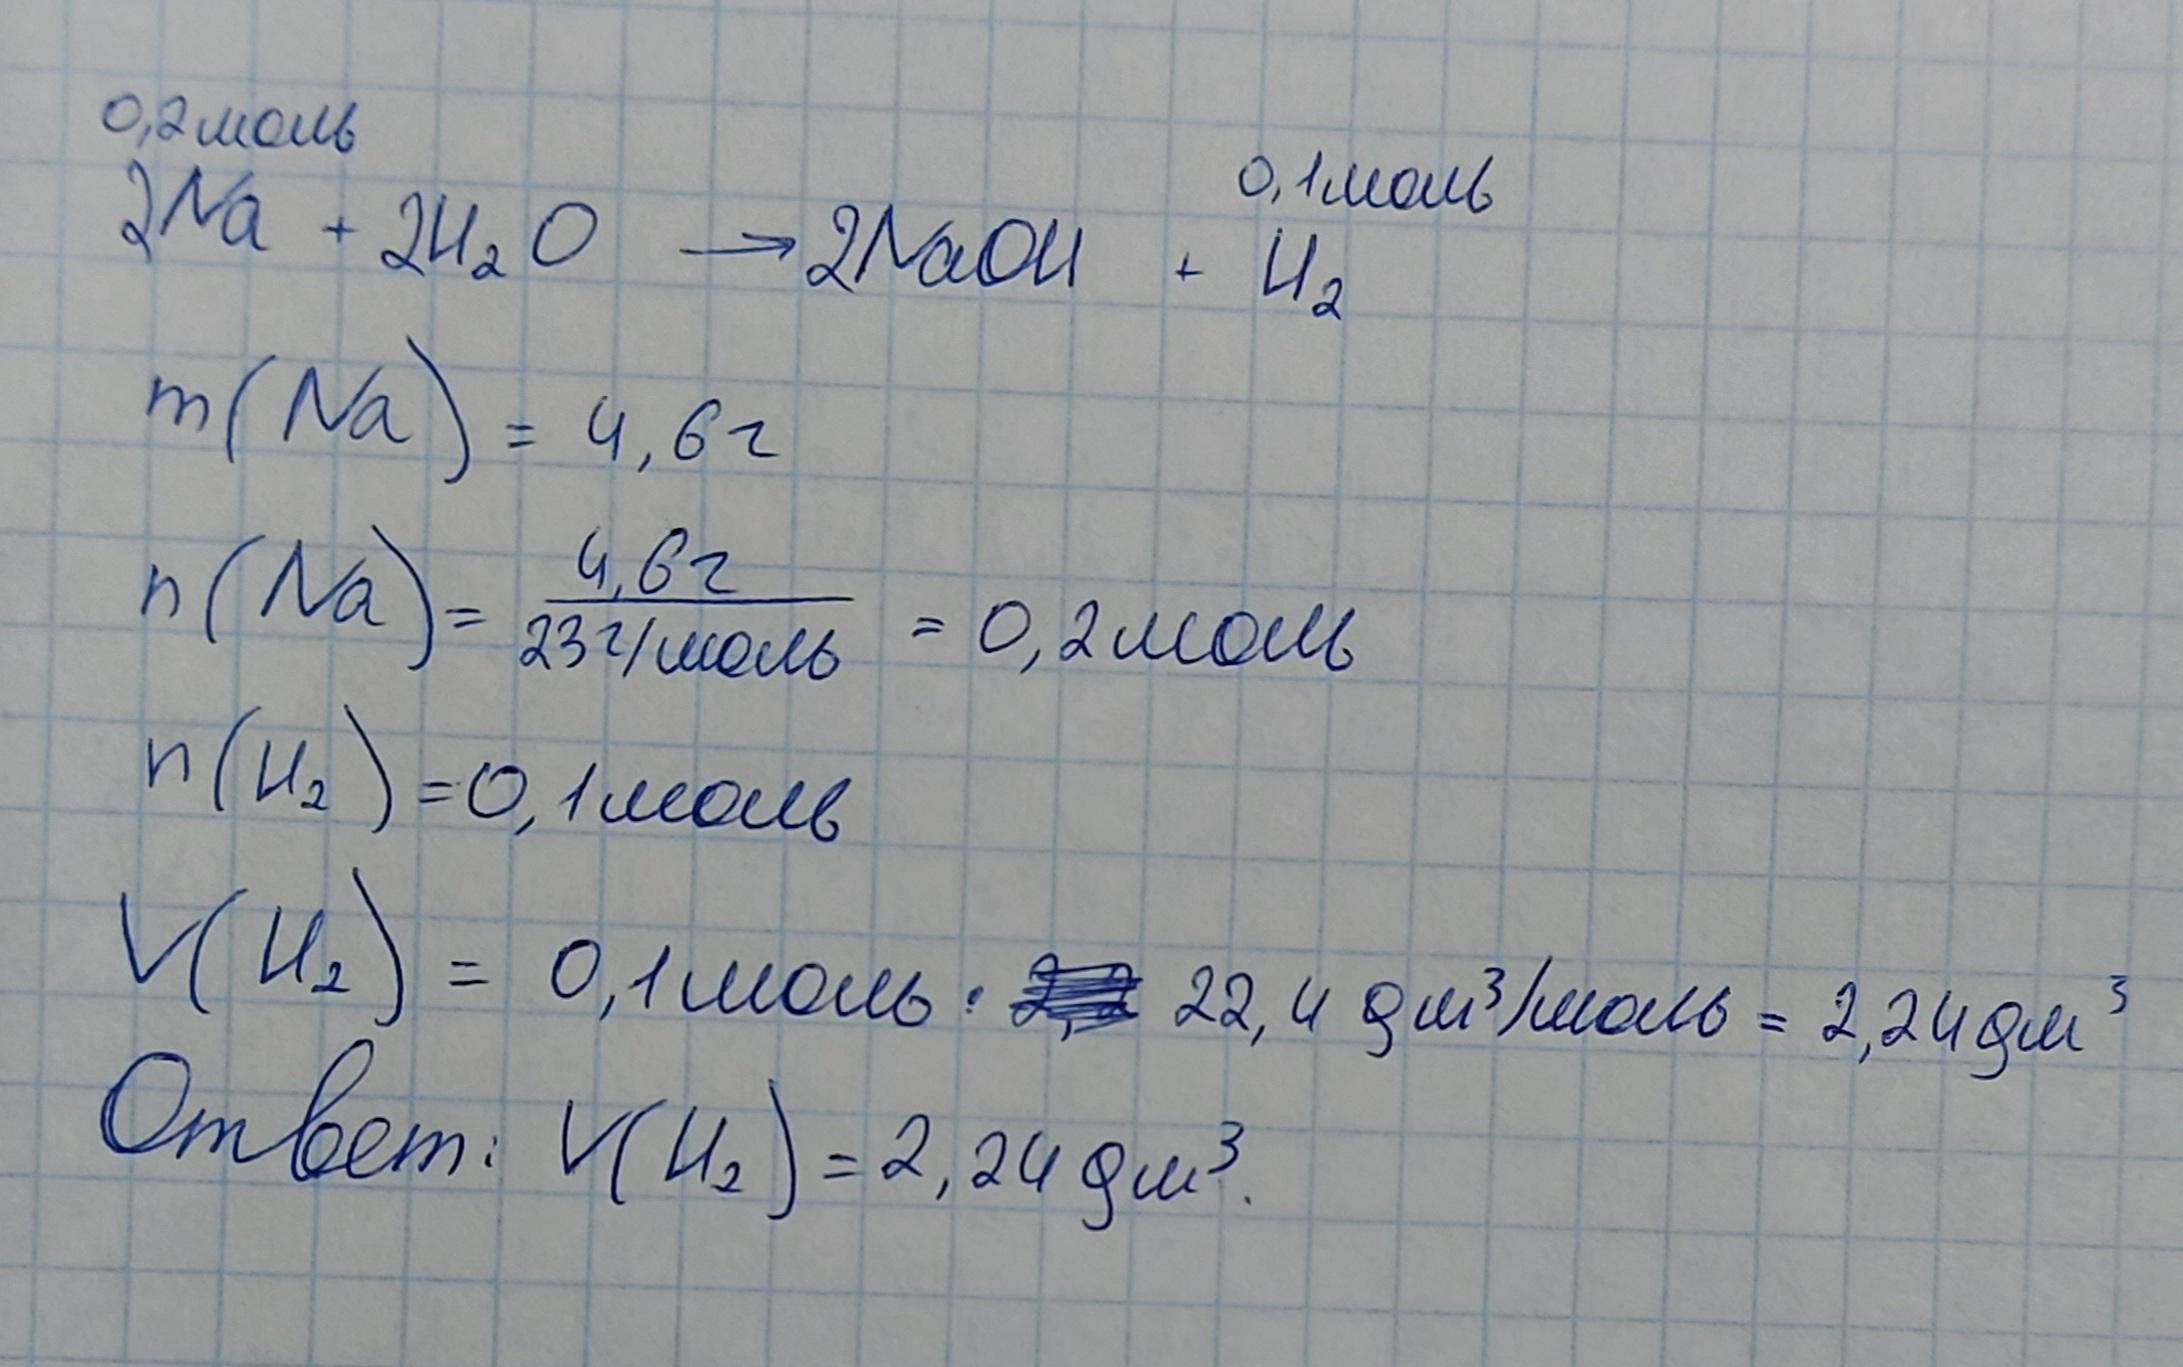 0,2моль
0,1моль
2Na + 2H₂O → 2NaOH + H₂
m(Na) = 4,6г
n(Na) = 4,6г / 23г/моль = 0,2моль
n(H₂) = 0,1моль
V(H₂) = 0,1моль · 22,4 дм³/моль = 2,24дм³
Ответ: V(H₂) = 2,24дм³.